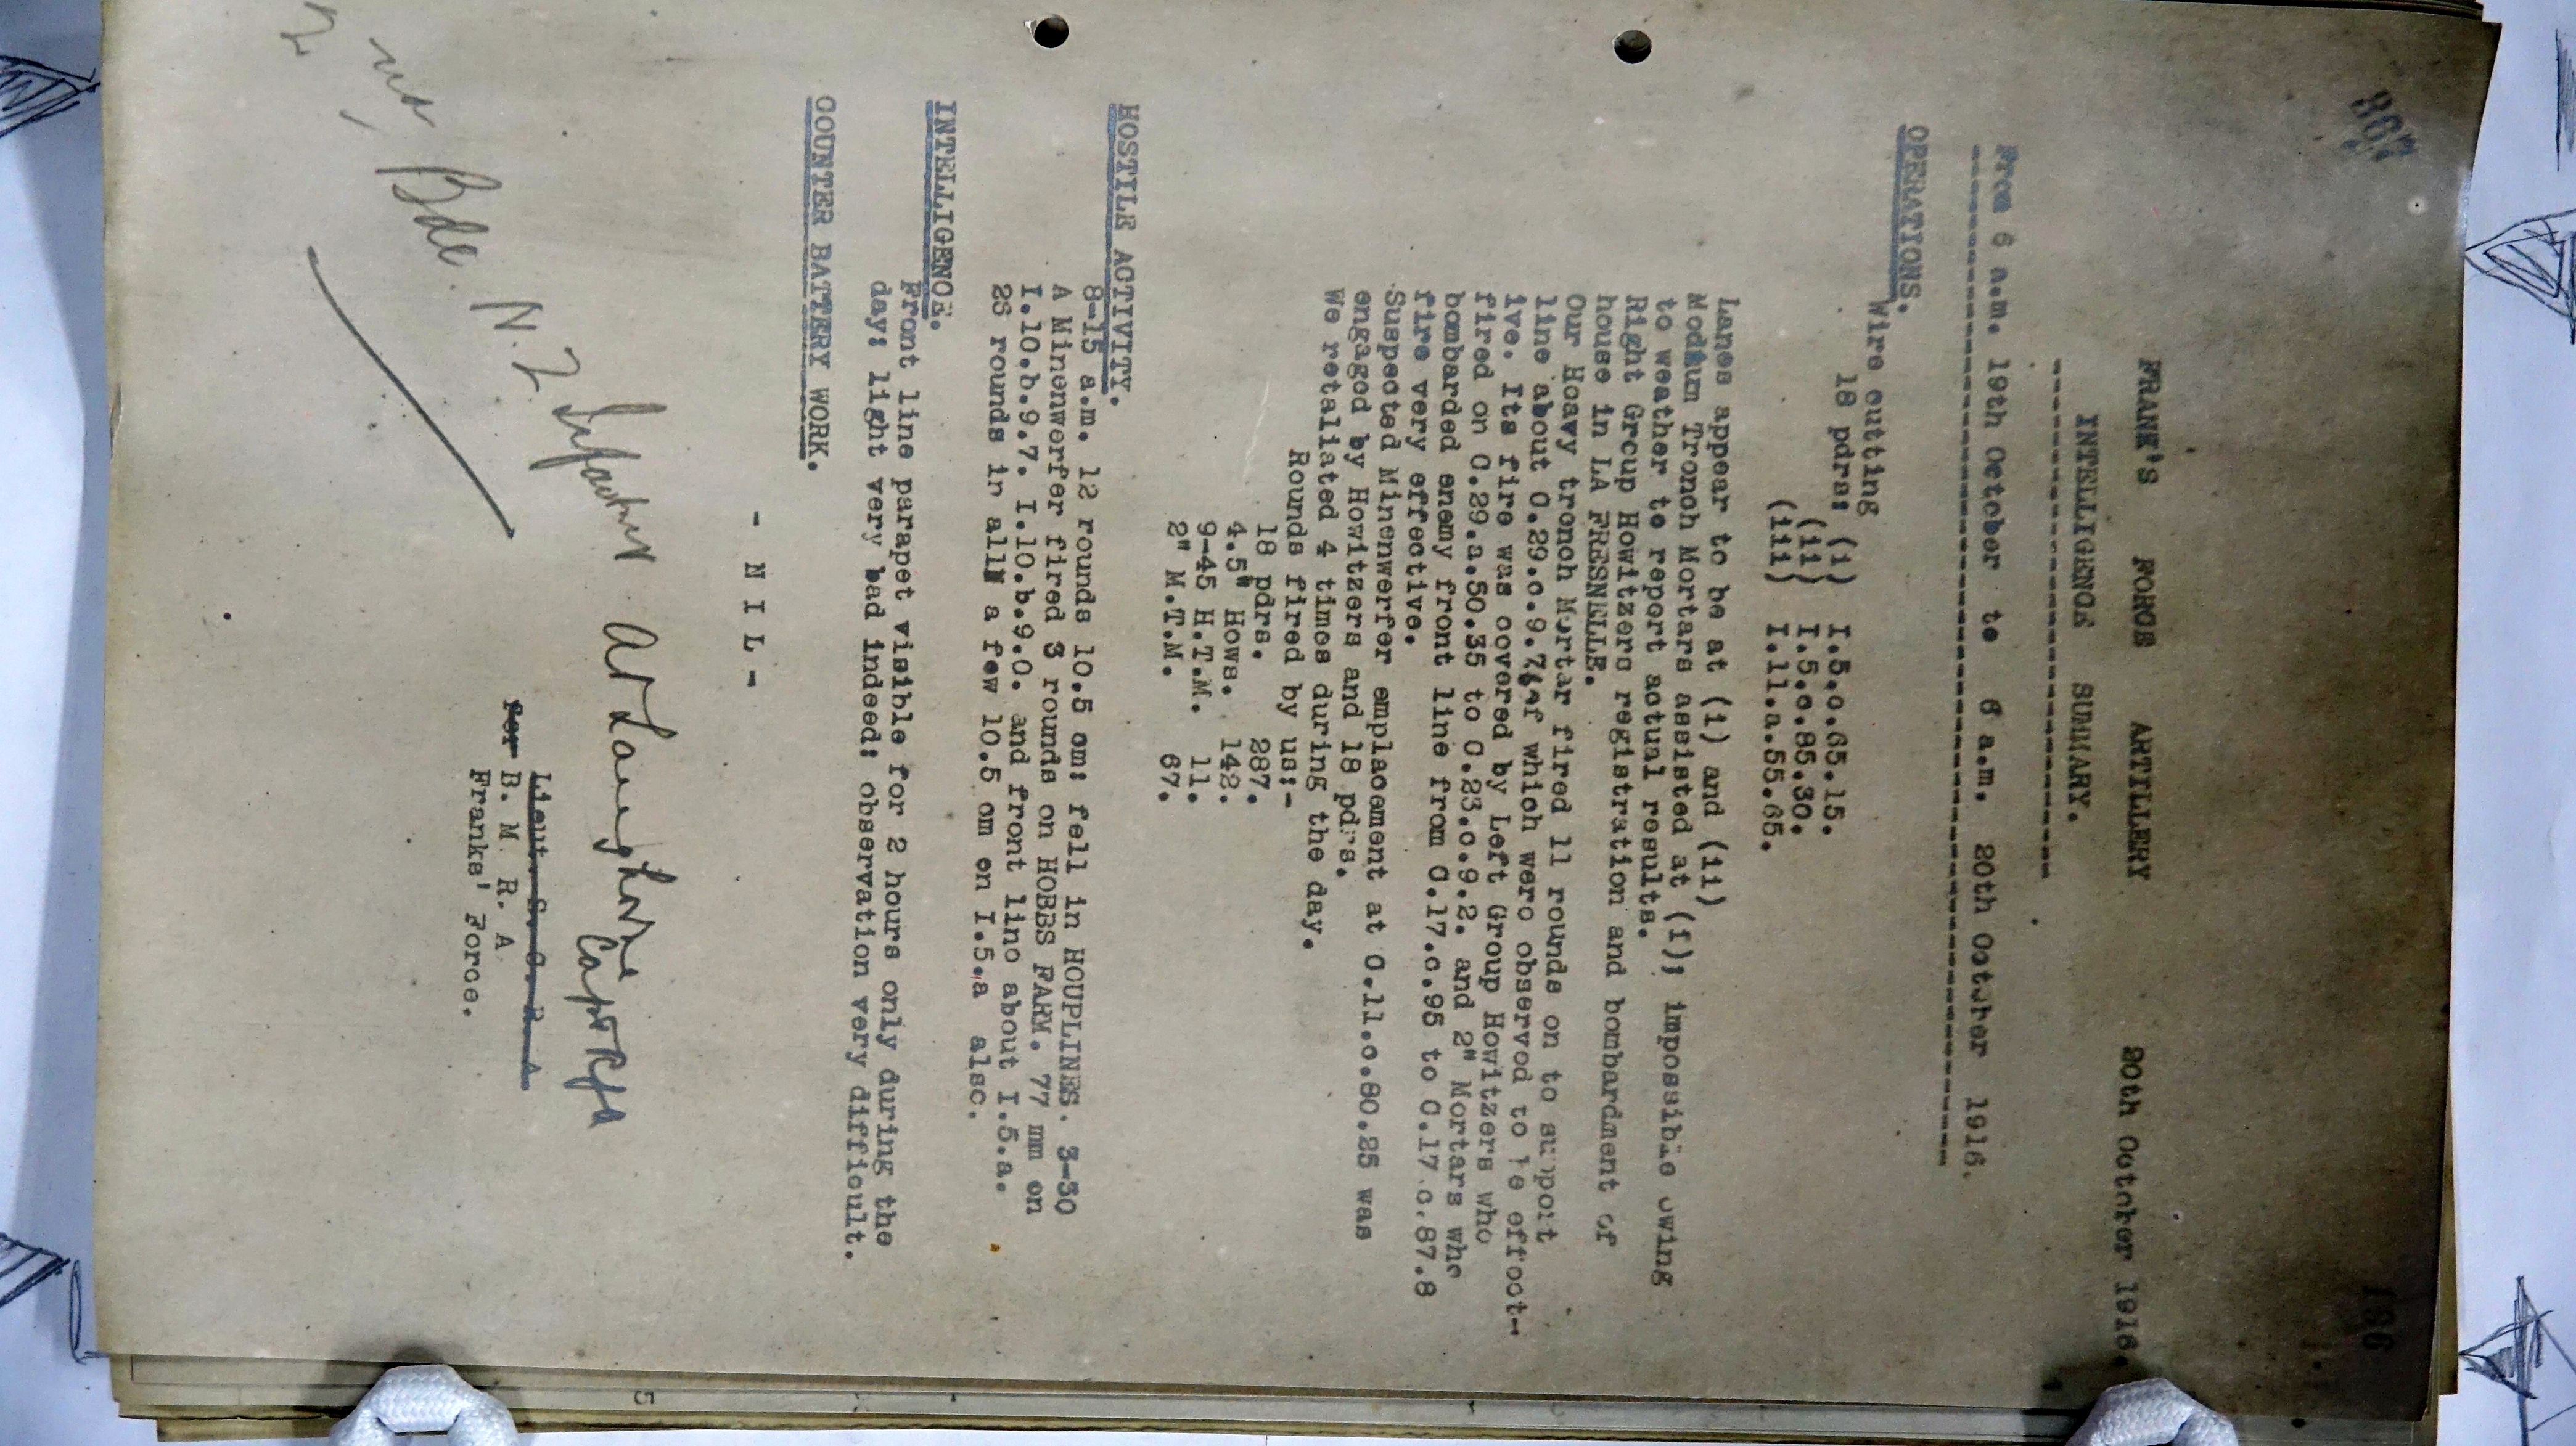 867
186
FRANK'S FORCE ARTILLERY 20th October 1916.
INTELLIGENCE SUMMARY.
From 6 a.m. 19th October to 6 a.m. 20th October 1916.
OPERATIONS.
Wire cutting
18 pdrs: (i) I.5.c.65.15.
(ii) I.5.c.85.30.
(iii) I.11.a.55.65.
Lanes appear to be at (i) and (ii)
Medium Trench Mortars assisted at (i); impossible owing
to weather to report actual results.
Right Group Howitzers registration and bombardment of
house in LA FRESNELLE.
Our Heavy trench Mortar fired 11 rounds on to support
line about C.29.c.9.7 of which were observed to be effect-
ive. Its fire was covered by Left Group Howitzers who
fired on C.29.a.50.35 to C.23.c.9.2. and 2" Mortars who
bombarded enemy front line from C.17.c.95 to C.17.c.87.8
fire very effective.
Suspected Minenwerfer emplacement at C.11.c.80.25 was
engaged by Howitzers and 18 pdrs.
We retaliated 4 times during the day.
Rounds fired by us:-
18 pdrs. 287.
4.5" Hows. 142.
9-45 H.T.M. 11.
2" M.T.M. 67.
HOSTILE ACTIVITY.
8-15 a.m. 12 rounds 10.5 cm: fell in HOUPLINES. 3-30
A Minenwerfer fired 3 rounds on HOBBS FARM. 77 mm on
I.10.b.9.7. I.10.b.9.0. and front line about I.5.a.
23 rounds in all a few 10.5 cm on I.5.a also.
INTELLIGENCE.
Front line parapet visible for 2 hours only during the
day: light very bad indeed: observation very difficult.
COUNTER BATTERY WORK.
- N I L -
Capt RFA
Lieut. S. O. R. A.
for B. M. R. A
Franks' Force.
Bde N.Z Infantry
5